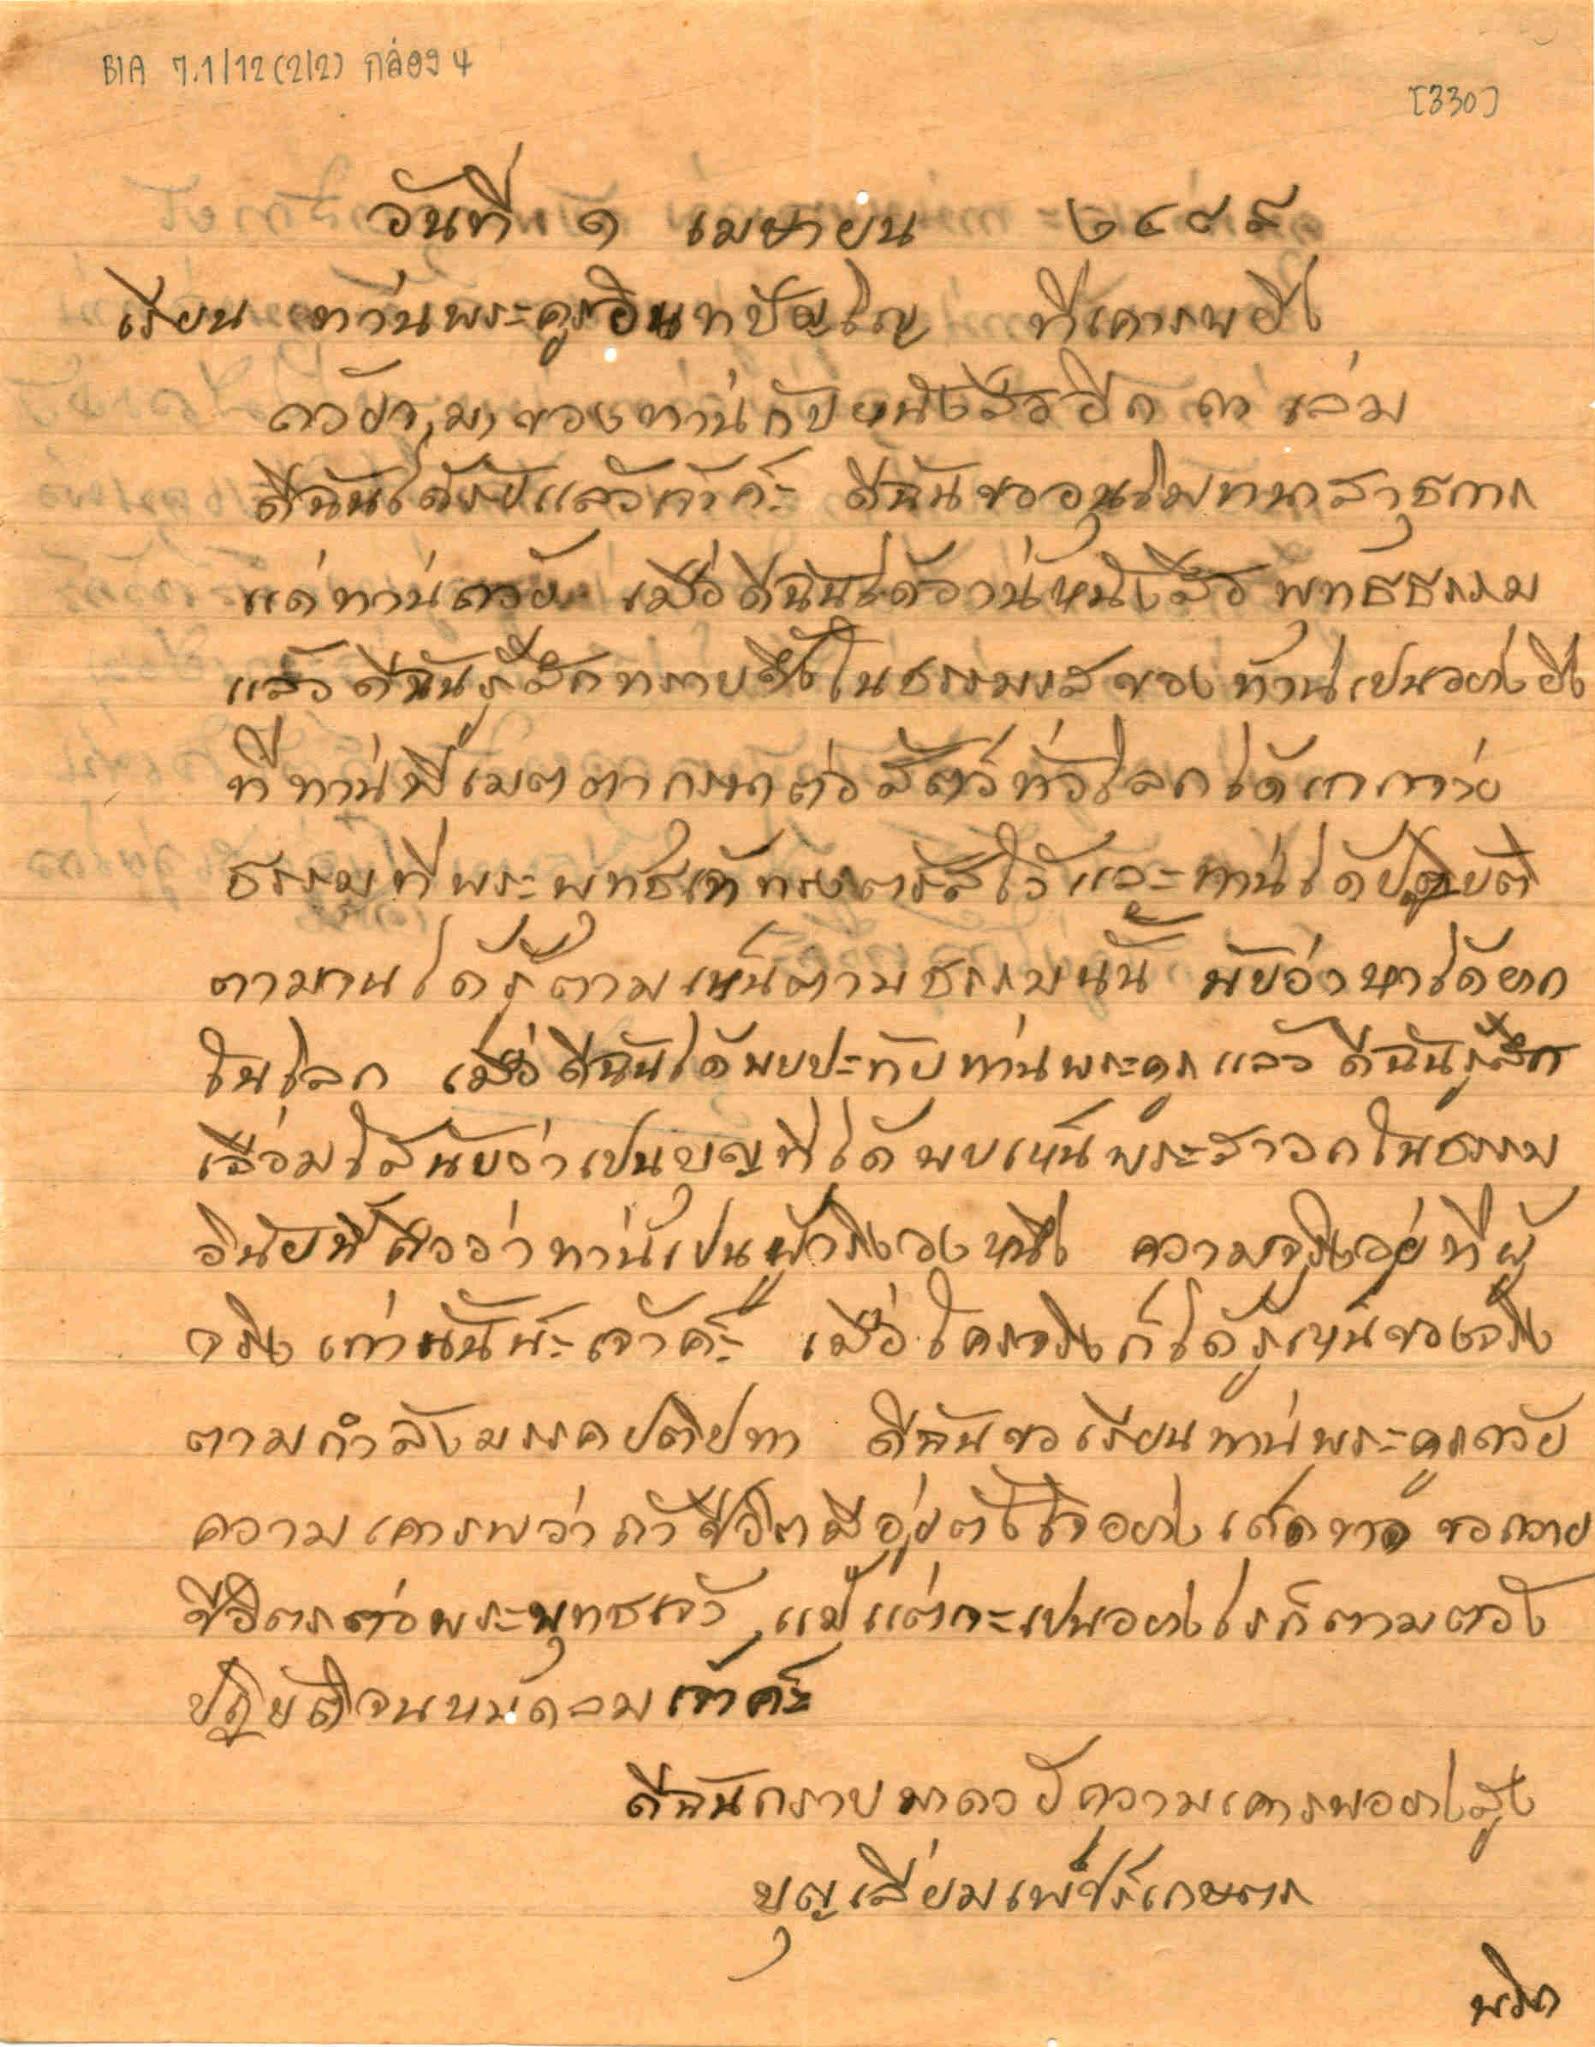 BIA 7.1/12 (2/2) กล่อง 4
[330]
วันที่ ๑ เมษายน ๒๔๙๕
เรียน ท่านพระครูอินทปัญโญ ที่เคารพยิ่ง
ดวยจ,ม,ของท่านกับหนังสืออีก ๓ เล่ม
ดีฉันได้รับแล้วเจ้าค๊ะ ดีฉันขออนุโมทนาสาธุการ
แด่ท่านดวย เมื่อดีฉันได้อ่านหนังสือพุทธธรรม
แล้วดีฉันรู้สึกทราบซึ้งในธรรมรสของท่านเปนอย่างยิ่ง
ที่ท่านมีเมตตากรุณาต่อสัตว์ทั่วโลกได้
ธรรมที่พระพุทธเจ้าทรงตรัสไว้และท่านได้ปฏิบัติ
ตามจนได้รู้ตามเห็นตามธรรมนั้น นับว่าหาได้ยาก
ในโลก เมื่อดีฉันได้พบปะกับท่านพระครูแล้วดีฉันรู้สึก
เลื่อมใสนับว่าเปนบุญที่ได้พบเห็นพระสาวกในธรรม
วินัยนี้คือว่าท่านเปนผู้จริงองหนึ่ง ความจริงอยู่ที่ผู้
จริงเท่านั้นน๊ะเจ้าค๊ะ เมื่อใครจริงก็ได้รู้เห็นของจริง
ตามกำลังมรรคปติปทา ดีฉันขอเรียนท่านพระครูดวย
ความเคารพว่าถ้าชีวิตมีอยู่ตั้งใจอย่างเด็ดขาด ขอถวาย
ชีวิตรต่อพระพุทธเจ้า แม้แต่จะเปนอย่างไรก็ตามตอง
ปฏิบัติจนหมดลมเจ้าค๊ะ
ดีฉันกราบมาดวยความเคารพอย่างสูง
บุญเลี่ยมเพ็ชร์เกษตร
พลิก